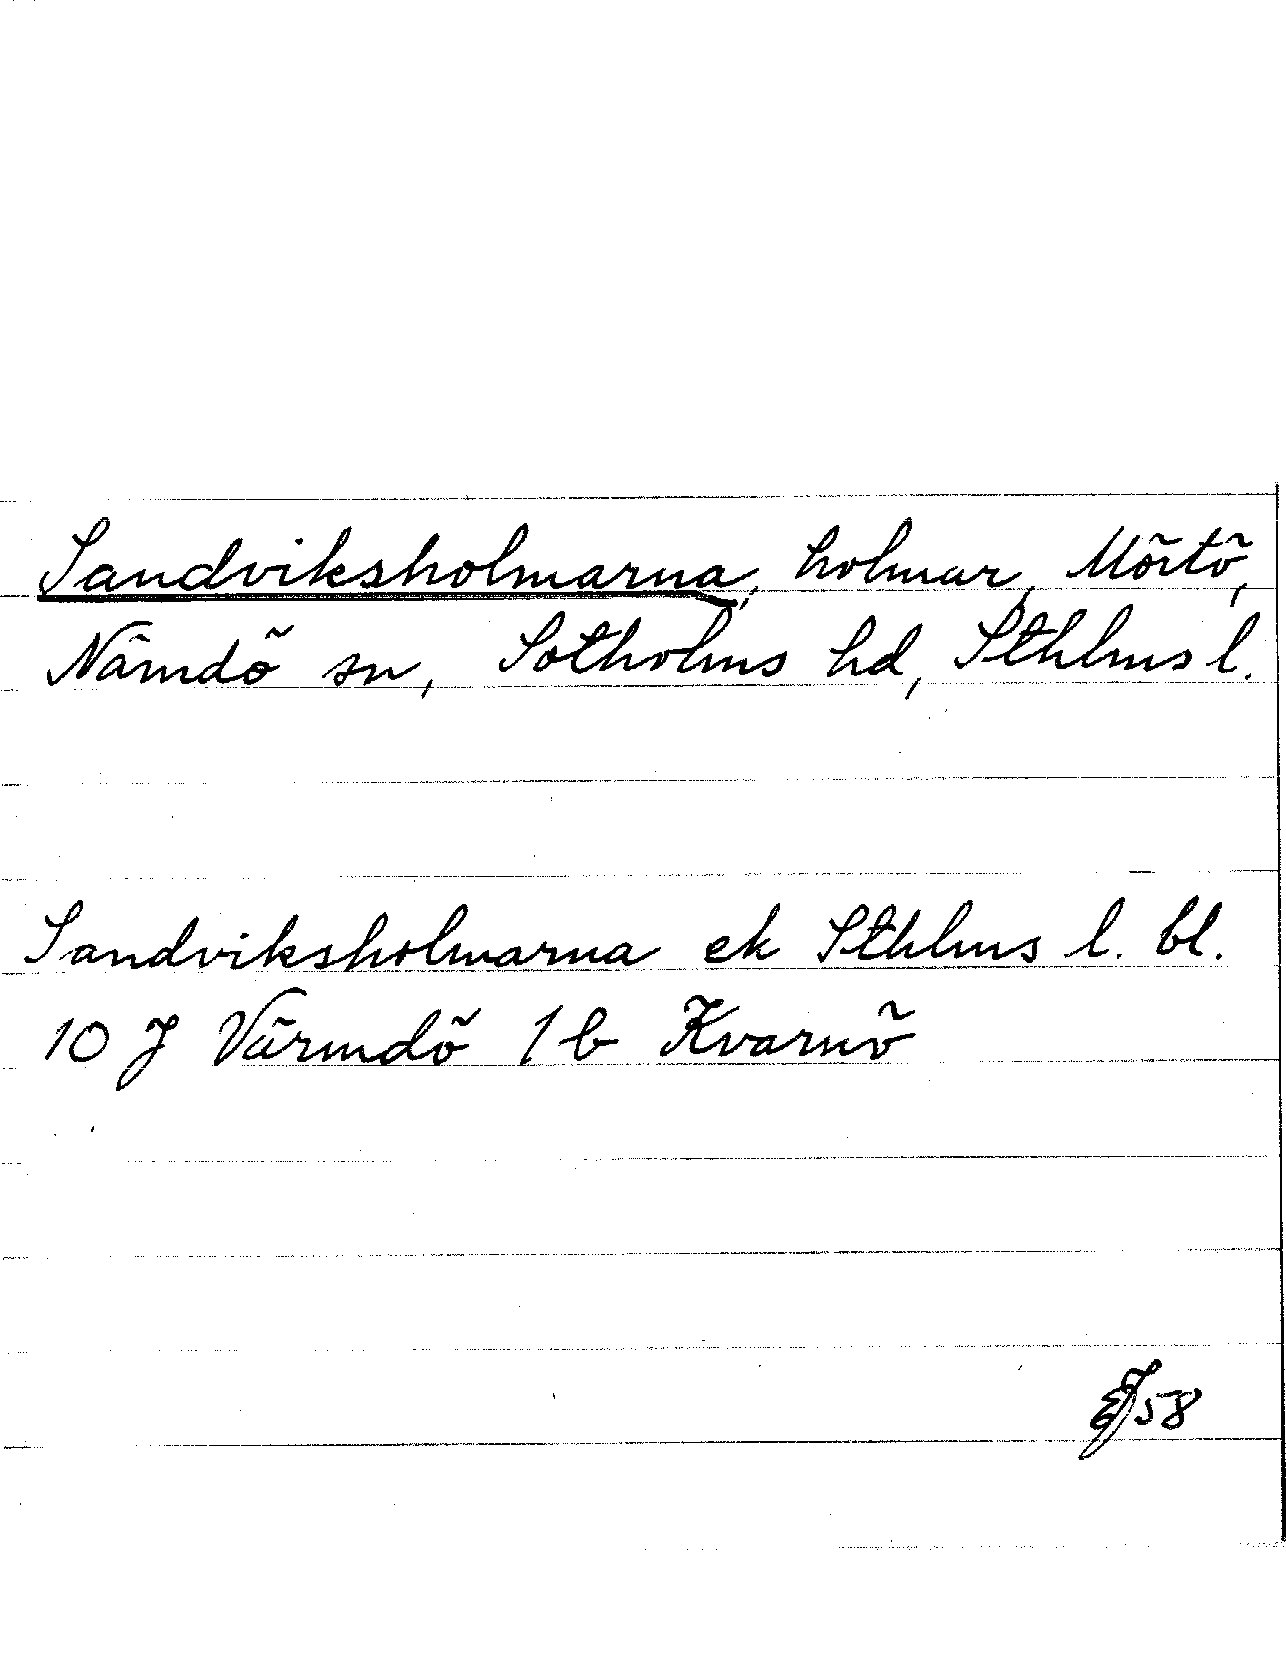 Sandviksholmarna, holmar, Mörtö,
Nämdö sn, Sotholms hd, Sthlms l.
Sandviksholmarna ek Sthlms l. bl.
10 J Värmdö 1 b Kvarnö
EJ 58